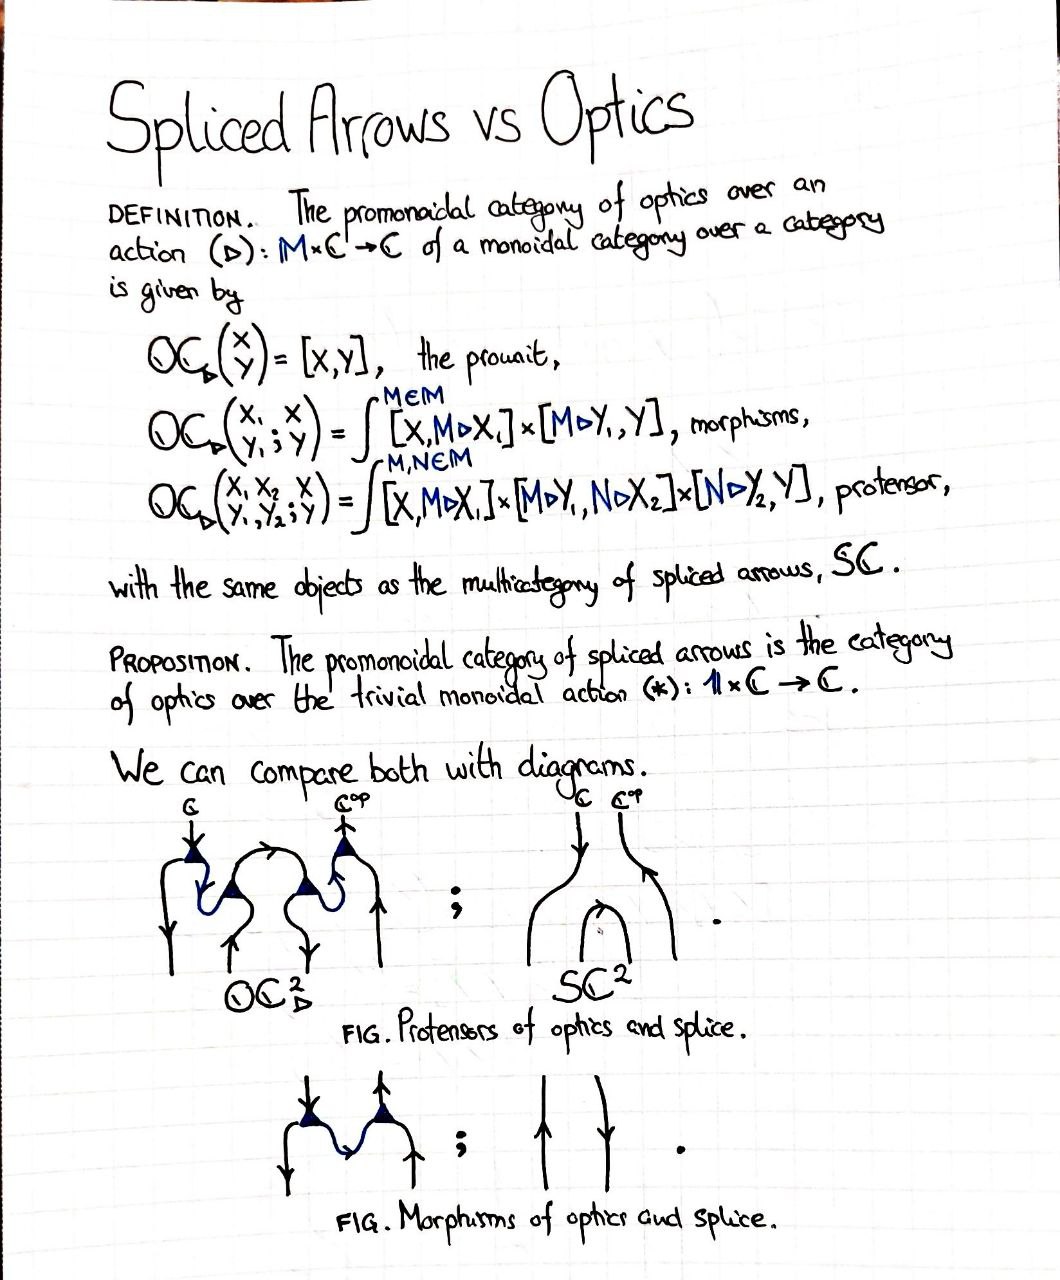 Spliced Arrows vs Optics
DEFINITION. The promonoidal category of optics over an
action (▷): 𝕄×ℂ→ℂ of a monoidal category over a category
is given by
𝕆ℂ▷(X Y) = [X,Y], the prounit,
𝕆ℂ▷(X₁ Y₁ ; X Y) = ∫^{M∈𝕄} [X,M▷X₁]×[M▷Y₁,Y], morphisms,
𝕆ℂ▷(X₁ Y₁, X₂ Y₂ ; X Y) = ∫^{M,N∈𝕄} [X,M▷X₁]×[M▷Y₁,N▷X₂]×[N▷Y₂,Y], protensor,
with the same objects as the multicategory of spliced arrows, 𝕊ℂ.
PROPOSITION. The promonoidal category of spliced arrows is the category
of optics over the trivial monoidal action (*): 𝟙×ℂ→ℂ.
We can compare both with diagrams.
ℂ ℂᵒᵖ ℂ ℂᵒᵖ
; .
𝕆ℂ²▷ 𝕊ℂ²
FIG. Protensors of optics and splice.
; .
FIG. Morphisms of optics and splice.